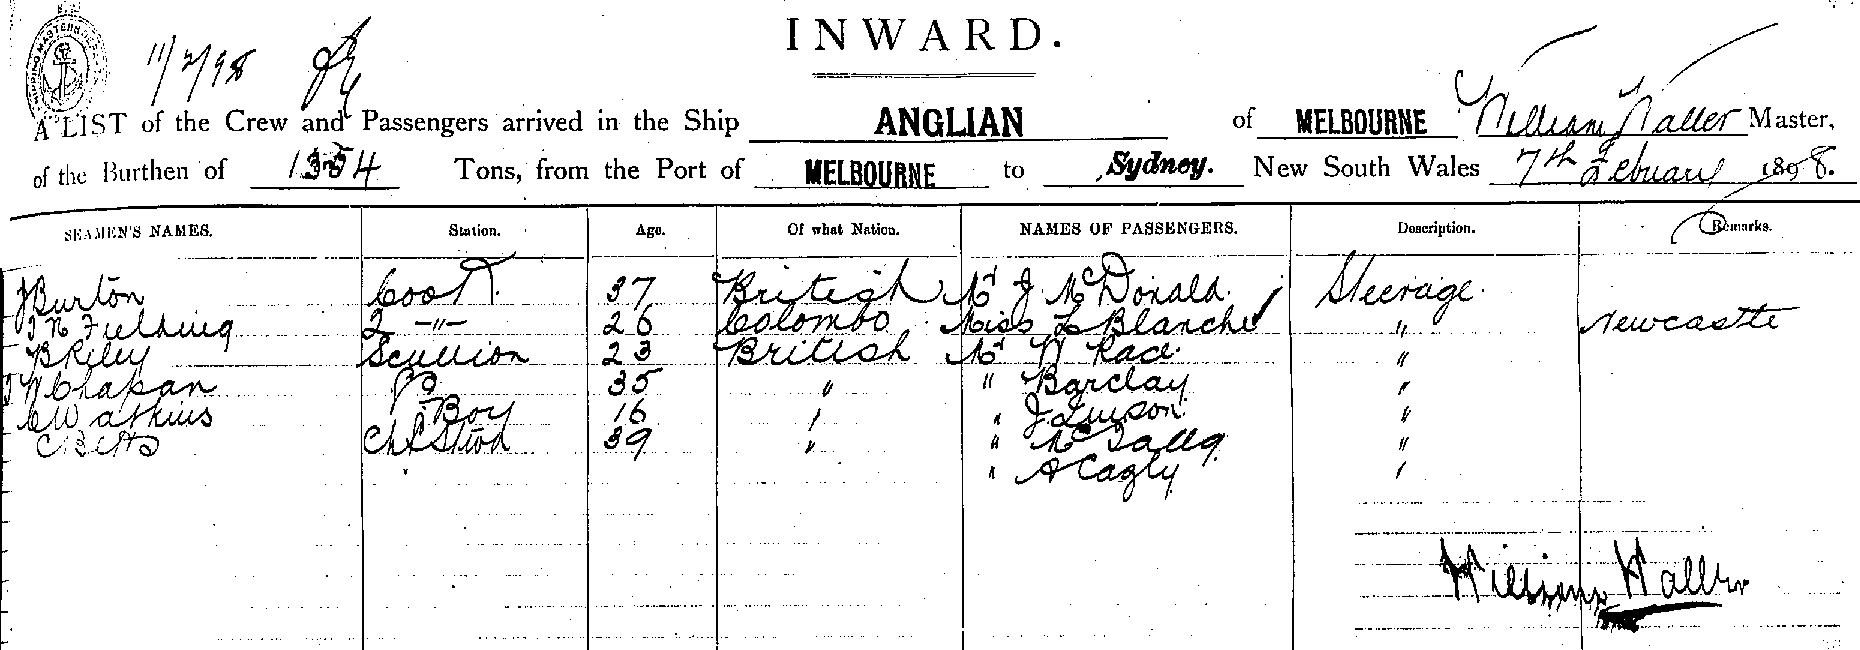 INWARD.
11/2/98
A LIST of the Crew and Passengers arrived in the Ship ANGLIAN of MELBOURNE William Waller Master,
of the Burthen of 1354 Tons, from the Port of MELBOURNE to Sydney. New South Wales 7th February 1898.
SEAMEN'S NAMES. Station. Age. Of what Nation. NAMES OF PASSENGERS. Description. Remarks.
J Burton Cook. 37 British Mr J McDonald. Steerage.
Fielding 2 -"- 26 Colombo Miss L Blanche " Newcastle
B Riley Scullion 23 British Mr W Race. "
W Chapan P 35 " " Barclay "
C Watkins Boy 16 " " J "
C Betts Ch Stwd 39 " " "
" A Cagly "
William Waller